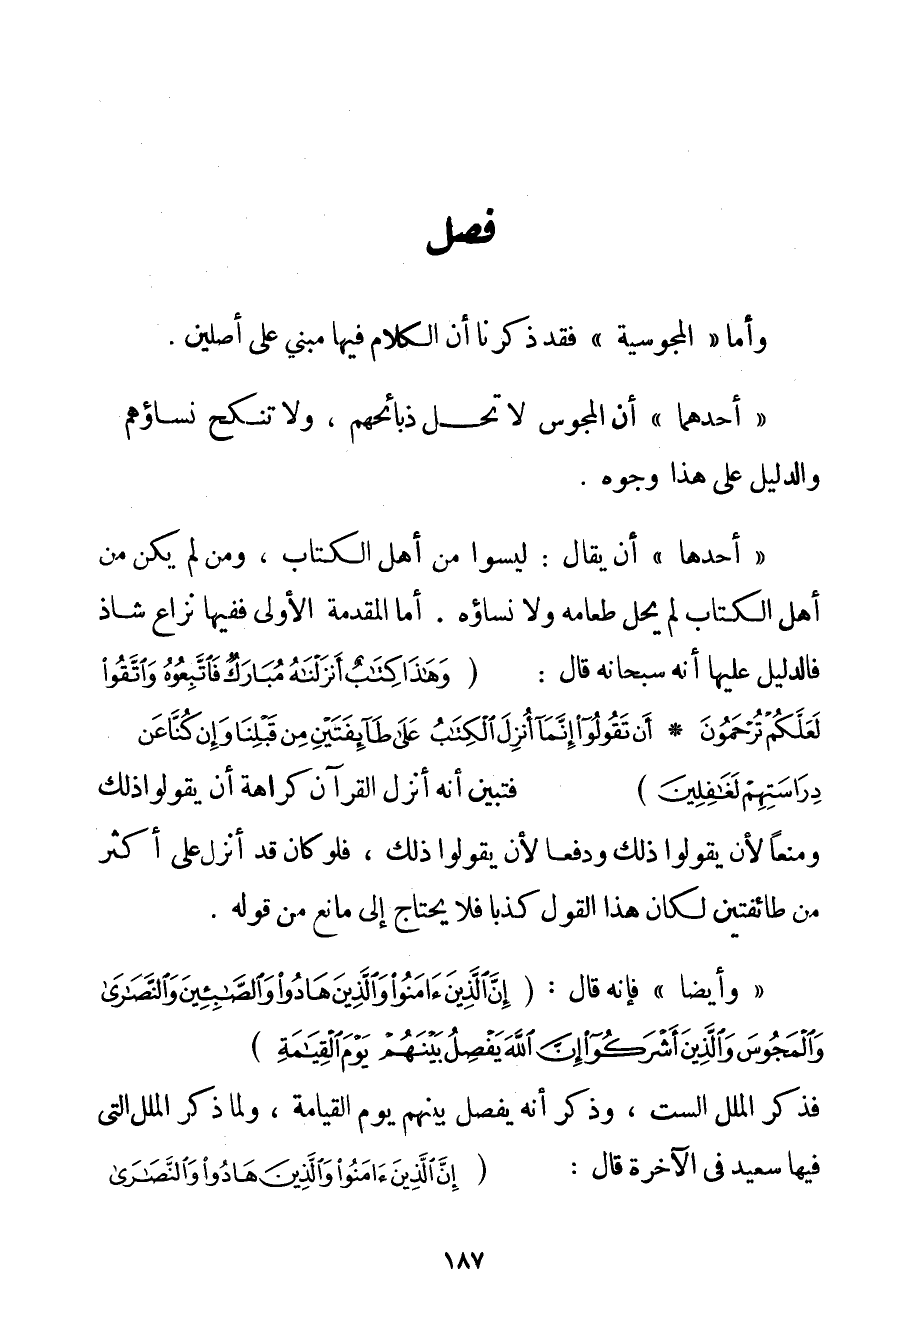 فصل
وأما « المجوسية » فقد ذكرنا أن الكلام فيها مبني على أصلين .
« أحدهما » أن المجوس لا تحل ذبائحهم ، ولا تنكح نساؤهم
والدليل على هذا وجوه .
« أحدها » أن يقال : ليسوا من أهل الكتاب ، ومن لم يكن من
أهل الكتاب لم يحل طعامه ولا نساؤه . أما المقدمة الأولى ففيها نزاع شاذ
فالدليل عليها أنه سبحانه قال : ( وَهَٰذَا كِتَٰبٌ أَنزَلْنَٰهُ مُبَارَكٌ فَٱتَّبِعُوهُ وَٱتَّقُوا۟
لَعَلَّكُمْ تُرْحَمُونَ * أَن تَقُولُوٓا۟ إِنَّمَآ أُنزِلَ ٱلْكِتَٰبُ عَلَىٰ طَآئِفَتَيْنِ مِن قَبْلِنَا وَإِن كُنَّا عَن
دِرَاسَتِهِمْ لَغَٰفِلِينَ ) فتبين أنه أنزل القرآن كراهة أن يقولوا ذلك
ومنعاً لأن يقولوا ذلك ودفعا لأن يقولوا ذلك ، فلو كان قد أنزل على أكثر
من طائفتين لكان هذا القول كذبا فلا يحتاج إلى مانع من قوله .
« وأيضا » فإنه قال : ( إِنَّ ٱلَّذِينَ ءَامَنُوا۟ وَٱلَّذِينَ هَادُوا۟ وَٱلصَّٰبِـِٔينَ وَٱلنَّصَٰرَىٰ
وَٱلْمَجُوسَ وَٱلَّذِينَ أَشْرَكُوٓا۟ إِنَّ ٱللَّهَ يَفْصِلُ بَيْنَهُمْ يَوْمَ ٱلْقِيَٰمَةِ )
فذكر الملل الست ، وذكر أنه يفصل بينهم يوم القيامة ، ولما ذكر الملل التى
فيها سعيد فى الآخرة قال : ( إِنَّ ٱلَّذِينَ ءَامَنُوا۟ وَٱلَّذِينَ هَادُوا۟ وَٱلنَّصَٰرَىٰ
١٨٧